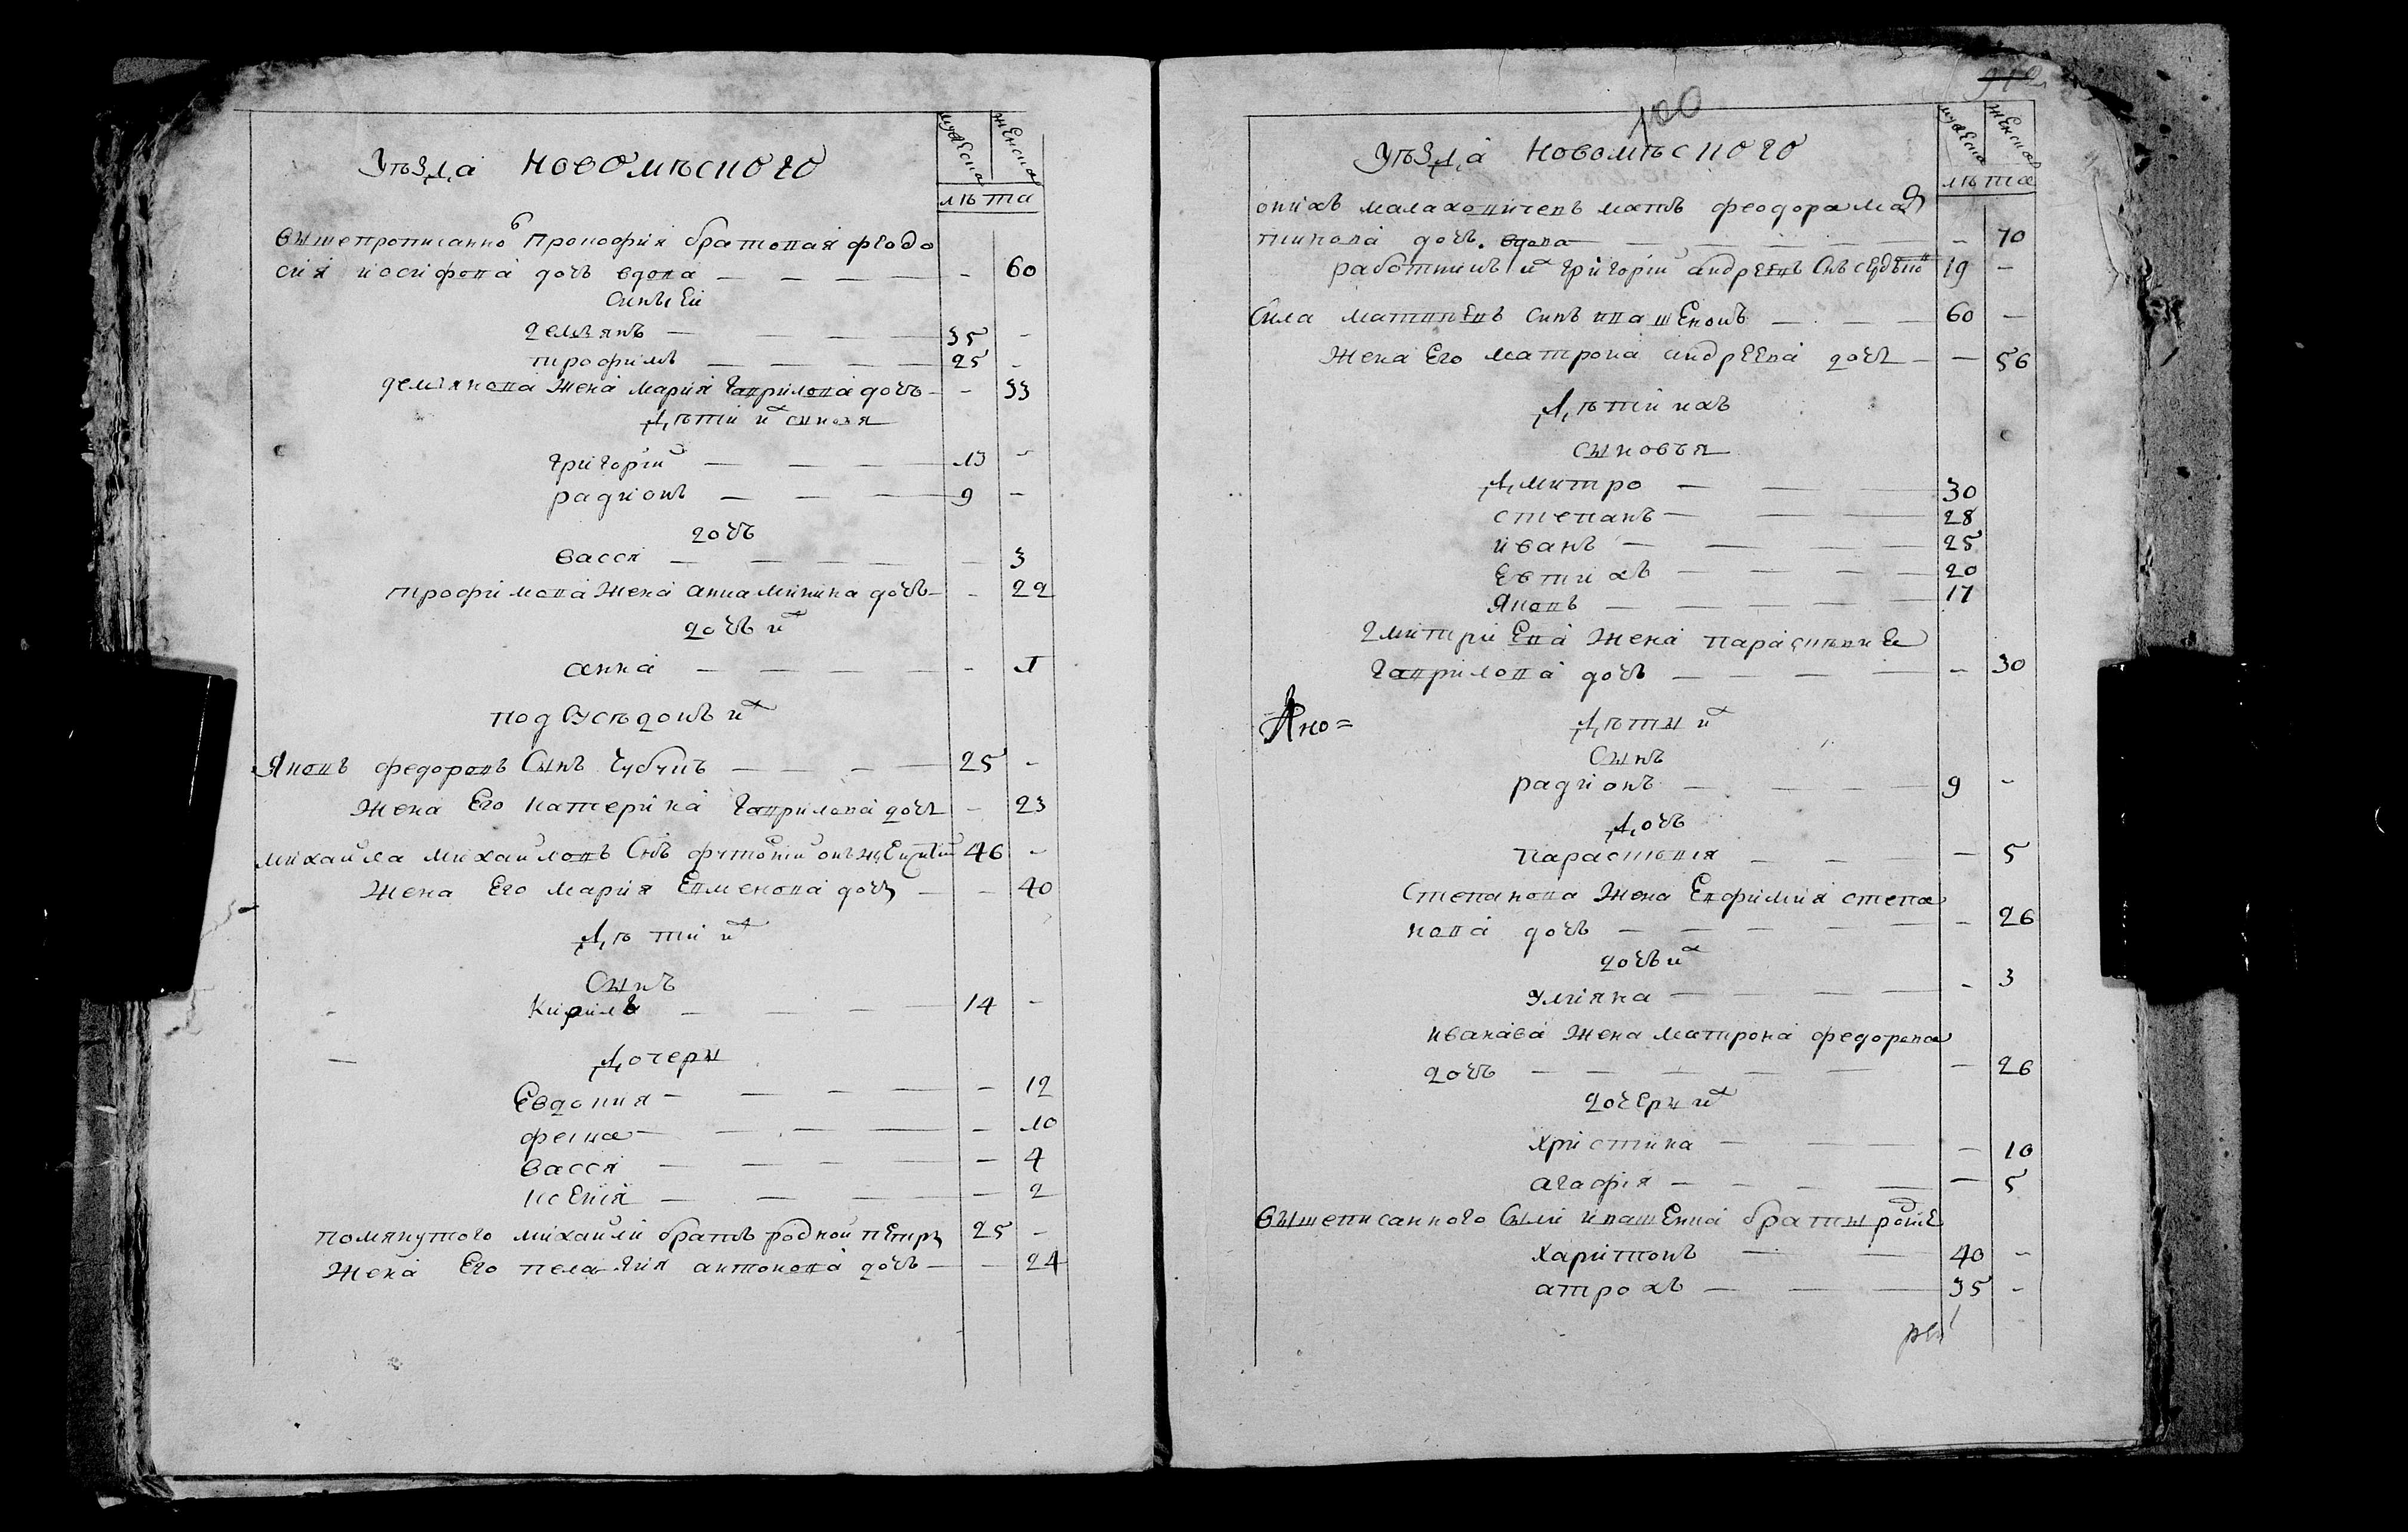 уѣзда новомѣского
мужеска
женска
лѣта
вышепрописанног Прокофия братовая феодо
сия иосифова дочь вдова — 60
синѣ Ей
демянъ 35 —
трофимъ 25 —
демянова жена мария гаврилова дочь — 33
дѣти их синовя
григорий 13 —
радионъ 9 —
дочь
васся — 3
трофимова жена анна минина дочь — 22
дочь их
анна — 1
подсусѣдокъ их
Яковъ федоровъ Сынъ Чубунъ 25 —
жена Его катерина гаврилова дочь — 23
михайла михайловъ Снъ 46 —
жена Его мария дочь — 40
дѣти их
Сынъ
Кирилъ 14 —
дочери
Евдокия — 12
фекла — 10
васся — 4
ксения — 2
помянутого михайли братъ родной петръ 25 —
жена Его пелагия антонова дочь — 24
100
уѣзда новомѣского
мужеска
женска
лѣта
онихъ малаховичевъ мать феодора мар
тинова дочь вдова — 70
работникъ их григорий андреевъ Снъ 19 —
Сила матвѣевъ синъ ивашенокъ 60 —
жена Его матрона андреева дочь — 56
дѣти ихъ
сыновья
дмитро 30
степанъ 28
иванъ 25
Евтихъ 20
Яковъ 17
дмитриева жена параскевие
гаврилова дочь — 30
Яно=
дѣты их
Сынъ
радионъ 9 —
дочь
парасковия — 5
Степанова жена Ефимия степа
нова дочь — 26
дочь их
улияна — 3
иванава жена матрона федорова
дочь — 26
дочеры их
христина — 10
агафия — 5
вышеписанного Сыли ивашенка браты родние
харитонъ 40 —
атрохъ 35 —